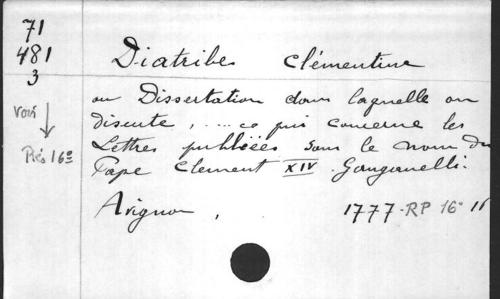 71
481
3
Diatribe Clémentine
ou Dissertation dans laquelle on
discute, .... ce qui concerne les
Lettres publiées sous le nom du
Pape Clement XIV. Ganganelli.
Avignon, 1777-RP 16°
voir
↓
Rés 16°